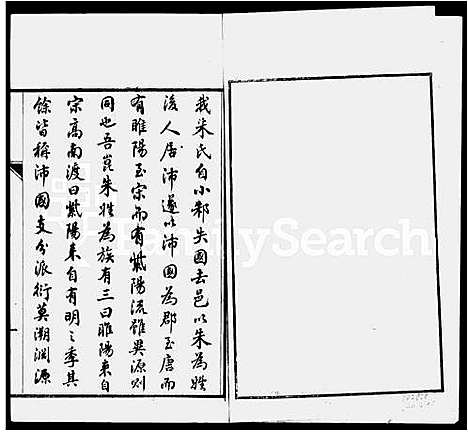 我朱氏自小邾失國去邑以朱為姓
後人居沛遂以沛國為郡至唐而
有睢陽至宗而有紫陽流雖異源則
同也吾崑朱姓為族有三曰睢陽來自
宗高南渡曰紫陽来自有明之季其
餘皆稱沛國支分派衍莫溯淵源
FamilySearch